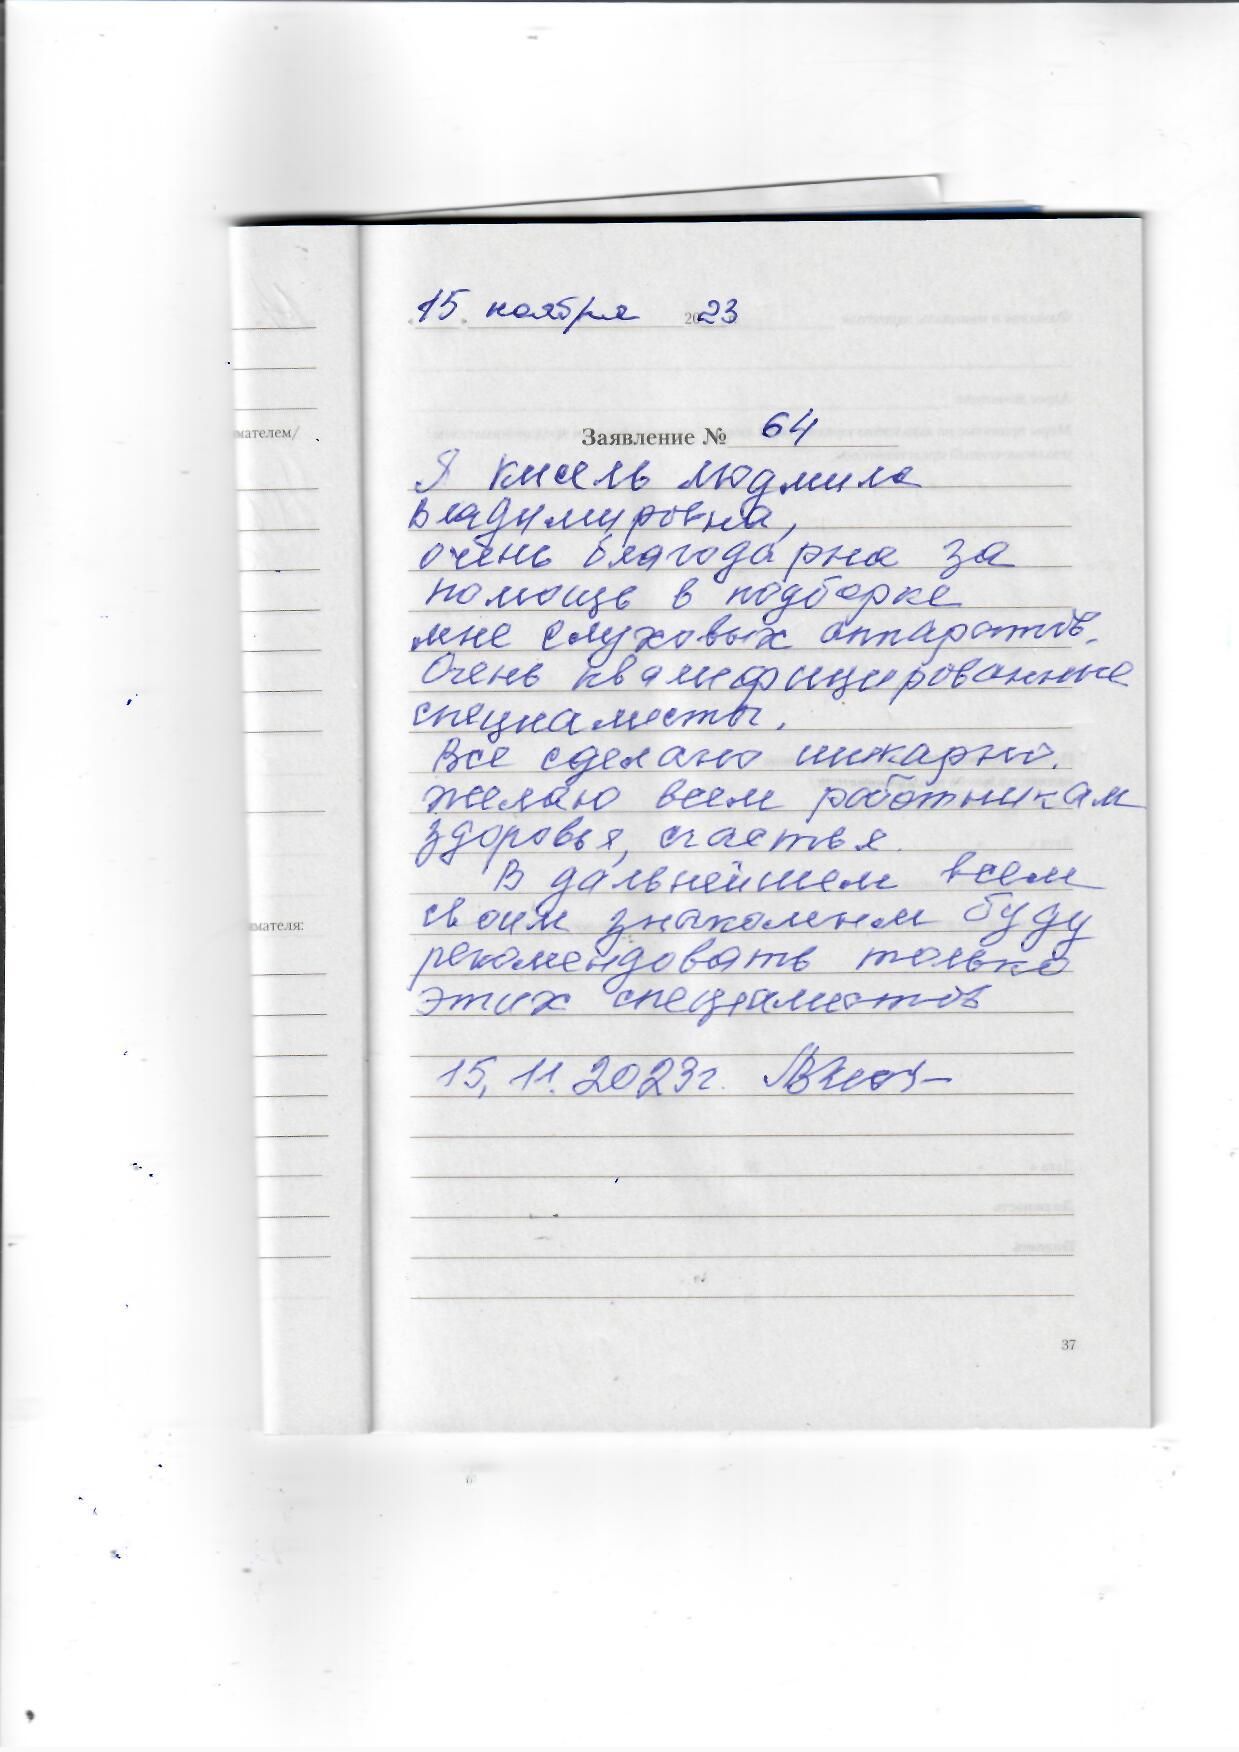 15 ноября 2023
мателем/
Заявление № 64
Я Кисель Людмила
Владимировна,
очень благодарна за
помощь в подборке
мне слуховых аппаратов.
Очень квалифицированные
специалисты.
Все сделано шикарно.
Желаю всем работникам
здоровья, счастья.
В дальнейшем всем
своим знакомым буду
мателя:
рекомендовать только
этих специалистов
15.11.2023г.
37